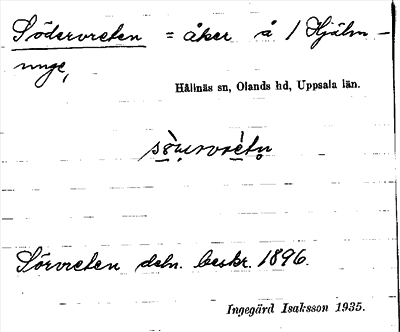 Södervreten = åker å 1 Hjälm-
unge,
Hållnäs sn, Olands hd, Uppsala län.
Sörvreten dsbn. beskr. 1896.
Ingegärd Isaksson 1935.